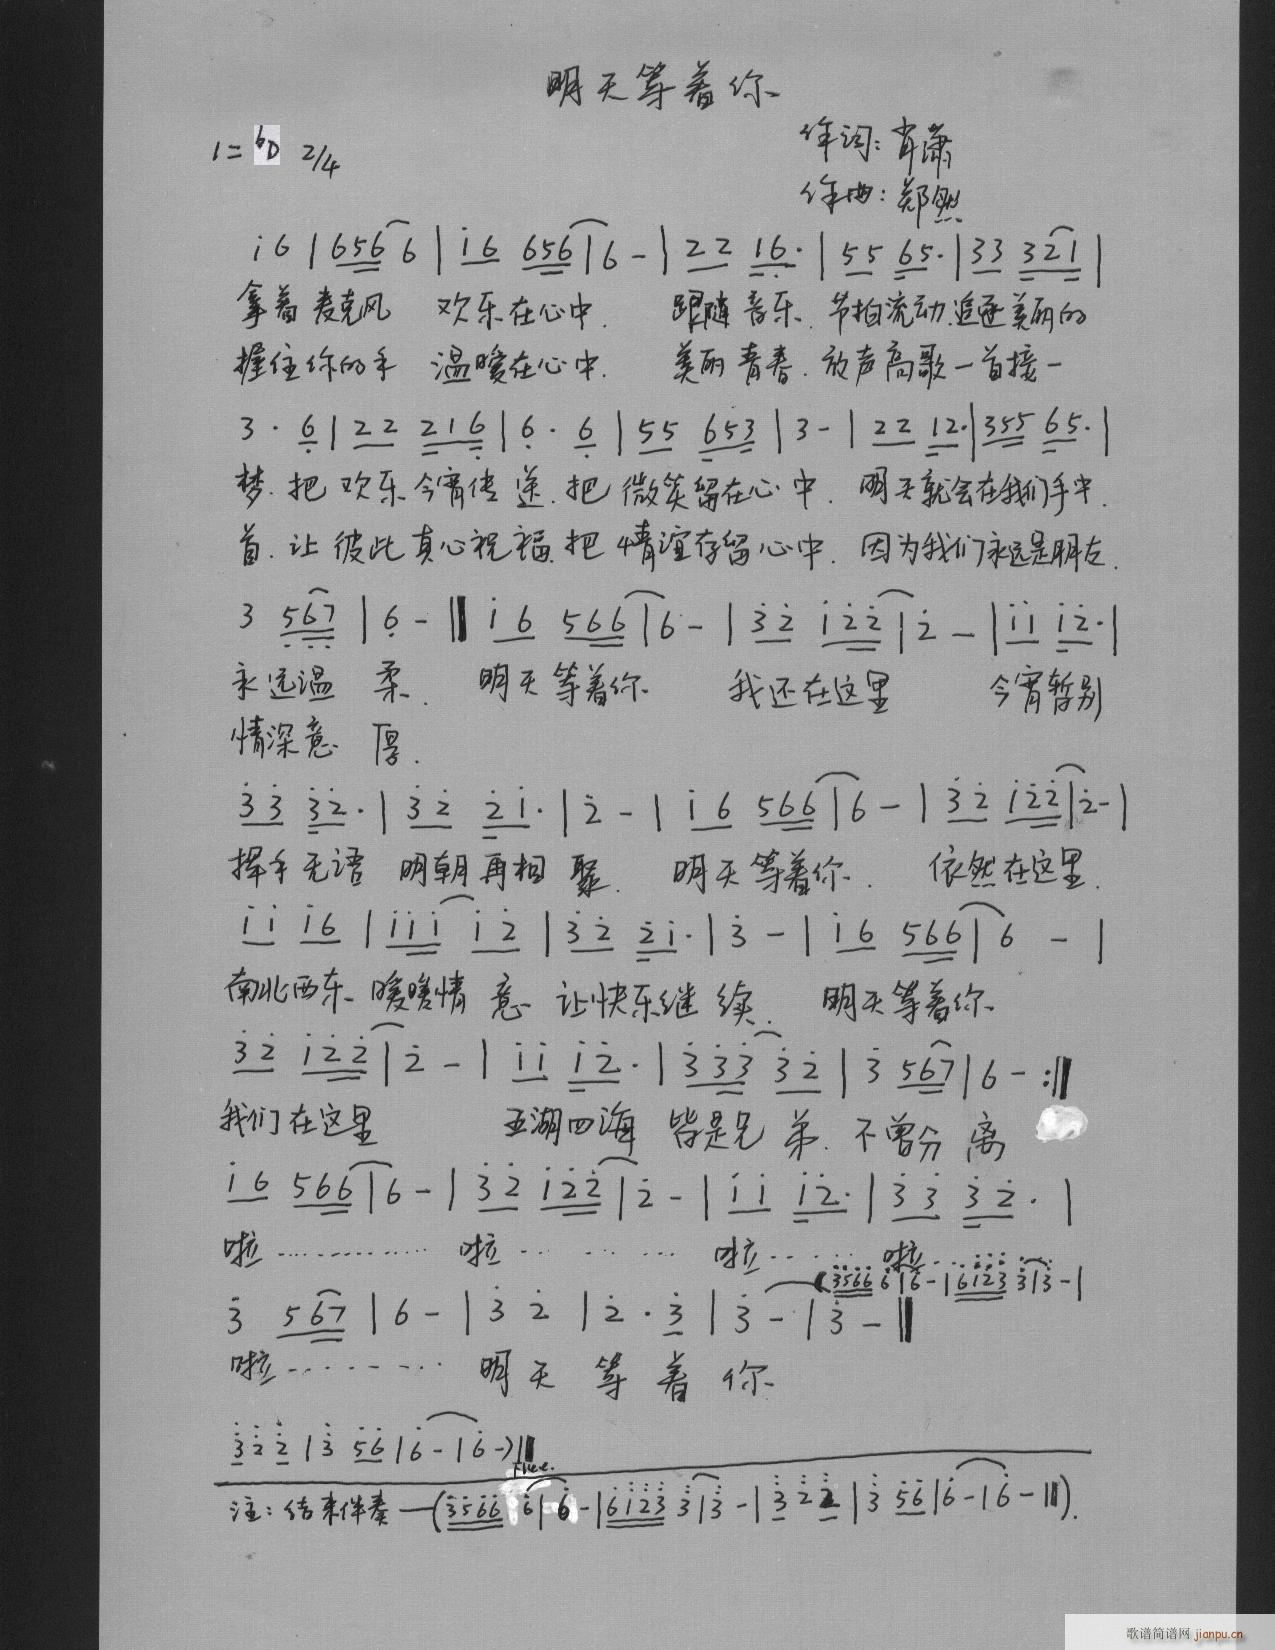 明天等着你
1=ᵇD 2/4
作词:肖潇
作曲:郑然
i 6 | 656 6 | i6 656 | 6 - | 22 16· | 55 65· | 33 321 |
拿着麦克风 欢乐在心中. 跟随音乐.节拍流动.追逐美丽的
握住你的手 温暖在心中. 美丽青春.放声高歌一首接一
3· 6 | 22 216 | 6· 6 | 55 653 | 3 - | 22 12· | 355 65· |
梦.把欢乐今宵传递.把微笑留在心中.明天就会在我们手中.
首.让彼此真心祝福.把情谊存留心中.因为我们永远是朋友.
3 567 | 6 - ‖ i6 566 | 6 - | 3̇2̇ i2̇2̇ | 2̇ - | ii i2̇· |
永远温柔. 明天等着你 我还在这里 今宵暂别
情深意厚.
3̇3̇ 3̇2̇· | 3̇2̇ 2̇i· | 2̇ - | i6 566 | 6 - | 3̇2̇ i2̇2̇ | 2̇ - |
挥手无语 明朝再相聚. 明天等着你. 依然在这里.
ii i6 | iii i2̇ | 3̇2̇ 2̇i· | 3̇ - | i6 566 | 6 - |
南北西东 暖暖情意 让快乐继续. 明天等着你
3̇2̇ i2̇2̇ | 2̇ - | ii i2̇· | 3̇3̇3̇ 3̇2̇ | 3̇ 567 | 6 - :‖
我们在这里 五湖四海 皆是兄弟.不曾分离
i6 566 | 6 - | 3̇2̇ i2̇2̇ | 2̇ - | ii i2̇· | 3̇3̇ 3̇2̇· |
啦………… 啦………… 啦…… 啦……
(3̇5̇6̇6̇ 6̇ | 6̇ - | 6̇i2̇3̇ 3̇ | 3̇ - |
3̇ 567 | 6 - | 3̇ 2̇ | 2̇· 3̇ | 3̇ - | 3̇ - ‖
啦………… 明天等着你
3̇2̇2̇ | 3̇ 5̇6̇ | 6̇ - | 6̇ -) ‖
注:结束伴奏—(3̇5̇6̇6̇ 6̇ | 6̇ - | 6̇i2̇3̇ 3̇ | 3̇ - | 3̇2̇2̇ | 3̇ 5̇6̇ | 6̇ - | 6̇ - ‖).
歌谱简谱网 jianpu.cn